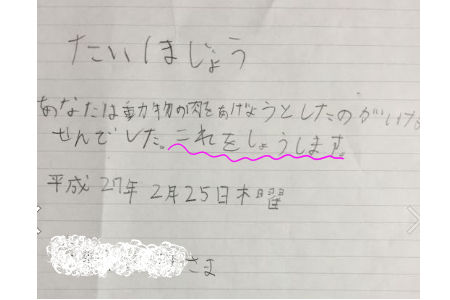 たいほじょう
あなたは動物の肉をあげようとしたのがいけま
せんでした。これをしょうします。
平成27年 2月25日木曜
さま